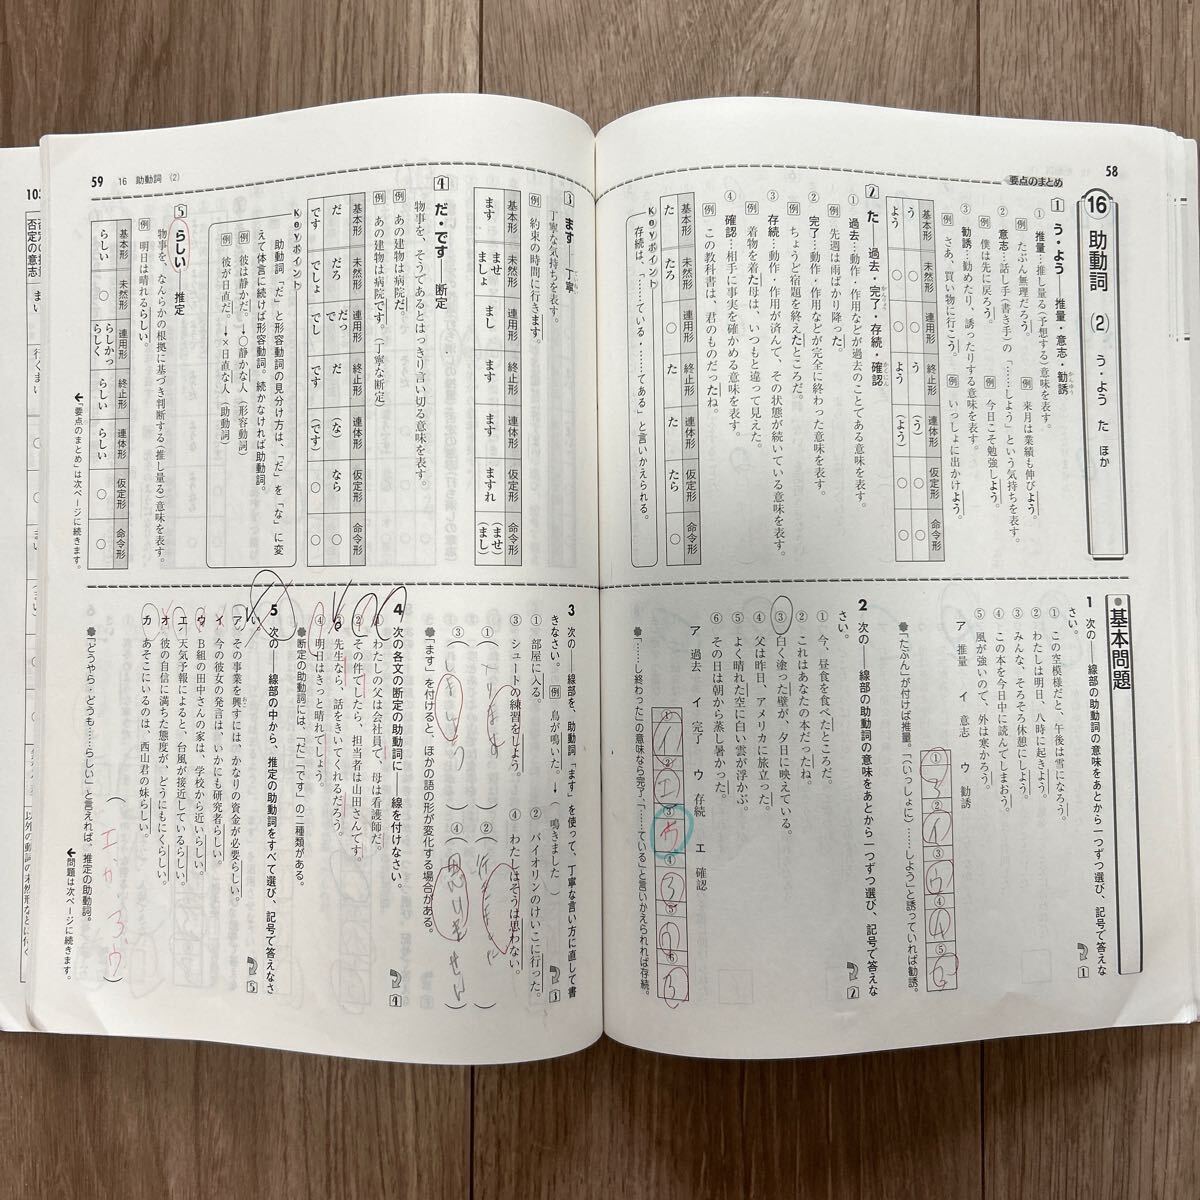 58
要点のまとめ
16 助動詞 (2) う・よう た ほか
1 う・よう――推量・意志・勧誘
① 推量…推し量る(予想する)意味を表す。
例 たぶん無理だろう。 例 来月は業績も伸びよう。
② 意志…話し手(書き手)の「……しよう」という気持ちを表す。
例 僕は先に戻ろう。 例 今日こそ勉強しよう。
③ 勧誘…勧めたり、誘ったりする意味を表す。
例 さあ、買い物に行こう。 例 いっしょに出かけよう。
基本形 未然形 連用形 終止形 連体形 仮定形 命令形
う ○ ○ う (う) ○ ○
よう ○ ○ よう (よう) ○ ○
2 た 過去・完了・存続・確認
① 過去…動作・作用などが過去のことである意味を表す。
例 先週は雨ばかり降った。
② 完了…動作・作用などが完全に終わった意味を表す。
例 ちょうど宿題を終えたところだ。
③ 存続…動作・作用が済んで、その状態が続いている意味を表す。
例 着物を着た母は、いつもと違って見えた。
④ 確認…相手に事実を確かめる意味を表す。
例 この教科書は、君のものだったね。
基本形 未然形 連用形 終止形 連体形 仮定形 命令形
た たろ ○ た た たら ○
Keyポイント
存続は、「……ている・……てある」と言いかえられる。
基本問題
1 次の――線部の助動詞の意味をあとから一つずつ選び、記号で答えなさい。 1
① この空模様だと、午後は雪になろう。
② わたしは明日、八時に起きよう。
③ みんな、そろそろ休憩にしよう。
④ この本を今日中に読んでしまおう。
⑤ 風が強いので、外は寒かろう。
ア 推量 イ 意志 ウ 勧誘
① ② ③ ④ ⑤
●「たぶん」が付けば推量。「(いっしょに)……しよう」と誘っていれば勧誘。
2 次の――線部の助動詞の意味をあとから一つずつ選び、記号で答えなさい。 2
① 今、昼食を食べたところだ。
② これはあなたの本だったね。
③ 白く塗った壁が、夕日に映えている。
④ 父は昨日、アメリカに旅立った。
⑤ よく晴れた空に白い雲が浮かぶ。
⑥ その日は朝から蒸し暑かった。
ア 過去 イ 完了 ウ 存続 エ 確認
① ② ③ ④ ⑤ ⑥
●「……終わった」の意味なら完了。「……ている」と言いかえられれば存続。
59 16 助動詞 (2)
3 ます――丁寧
丁寧な気持ちを表す。
例 約束の時間に行きます。
基本形 未然形 連用形 終止形 連体形 仮定形 命令形
ます ませ ましょ まし ます ます ますれ (ませ) (まし)
4 だ・です 断定
物事を、そうであるとはっきり言い切る意味を表す。
例 あの建物は病院だ。
例 あの建物は病院です。(丁寧な断定)
基本形 未然形 連用形 終止形 連体形 仮定形 命令形
だ だろ だっ で だ (な) なら ○
です でしょ でし です (です) ○ ○
Keyポイント
助動詞「だ」と形容動詞の見分け方は、「だ」を「な」に変えて体言に続けば形容動詞。続かなければ助動詞。
例 彼は静かだ。→○静かな人(形容動詞)
例 彼が日直だ。→×日直な人(助動詞)
5 らしい 推定
物事を、なんらかの根拠に基づき判断する(推し量る)意味を表す。
例 明日は晴れるらしい。
基本形 未然形 連用形 終止形 連体形 仮定形 命令形
らしい ○ らしかっ らしく らしい らしい ○ ○
←「要点のまとめ」は次ページに続きます。
3 次の――線部を、助動詞「ます」を使って、丁寧な言い方に直して書きなさい。 例 鳥が鳴いた。→(鳴きました) 3
① 部屋に入る。 ② バイオリンのけいこに行った。
③ シュートの練習をしよう。 ④ わたしはそうは思わない。
① ②
③ ④
●「ます」を付けると、ほかの語の形が変化する場合がある。
4 次の各文の断定の助動詞に――線を付けなさい。 4
① わたしの父は会社員で、母は看護師だ。
② その件でしたら、担当者は山田さんです。
③ 先生なら、話をきいてくれるだろう。
④ 明日はきっと晴れでしょう。
●断定の助動詞には、「だ」「です」の二種類がある。
5 次の――線部の中から、推定の助動詞をすべて選び、記号で答えなさい。 5
ア その事業を興すには、かなりの資金が必要らしい。
イ 今の彼女の発言は、いかにも研究者らしい。
ウ B組の田中さんの家は、学校から近いらしい。
エ 天気予報によると、台風が接近しているらしい。
オ 彼の自信に満ちた態度が、どうにもにくらしい。
カ あそこにいるのは、西山君の妹らしい。
●「どうやら・どうも……らしい」と言えれば、推定の助動詞。
←問題は次ページに続きます。